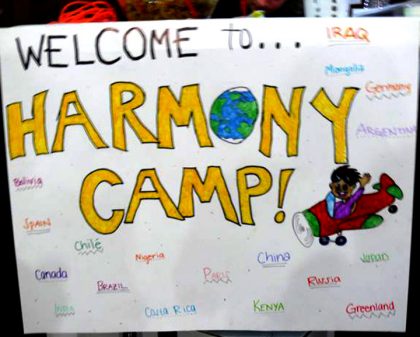 WELCOME to... IRAQ
Mongolia
Germany
HARMONY
ARGENTINA
Bolivia
CAMP!
SPAIN
Chile
Nigeria
China
Japan
Canada
BRAZIL
Paris
Russia
INDIA
Costa Rica
KENYA
Greenland